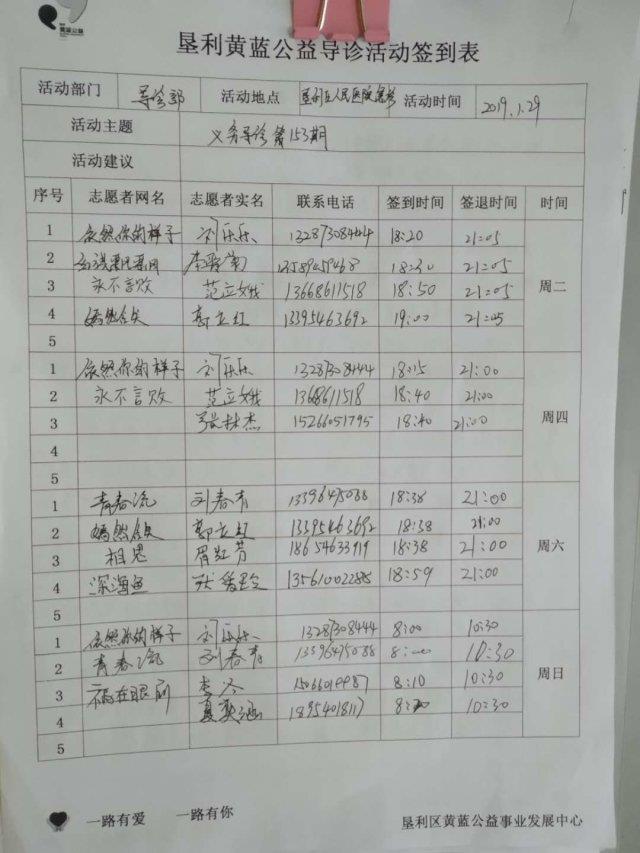 黄蓝公益
垦利黄蓝公益导诊活动签到表
活动部门 导诊部 活动地点 垦利区人民医院 活动时间 2019.1.29
活动主题 义务导诊第153期
活动建议
序号 志愿者网名 志愿者实名 联系电话 签到时间 签退时间 时间
1 依然你的样子 刘乐乐 13287308444 18:20 21:05
2 13589459468 18:30 21:05
3 永不言败 范立娥 13668611518 18:50 21:05
周二
4 嫣然含笑 郭立红 13395463692 19:00 21:05
5
1 依然你的样子 刘乐乐 13287308444 18:15 21:00
2 永不言败 范立娥 1368611518 18:40 21:00
3 张林杰 15266051795 18:40 21:00
周四
4
5
1 青春流 刘春青 13396475088 18:38 21:00
2 嫣然含笑 郭立红 13395463692 18:38 21:00
3 相思 18654633919 18:38 21:00
周六
4 深海鱼 13561002288 18:59 21:00
5
1 依然你的样子 刘乐乐 13287308444 8:00 10:30
2 青春流 刘春青 13396475088 8:00 10:30
3 福在眼前 李冬 15066019987 8:10 10:30
周日
4 18954018117 10:30
5
一路有爱 一路有你
垦利区黄蓝公益事业发展中心